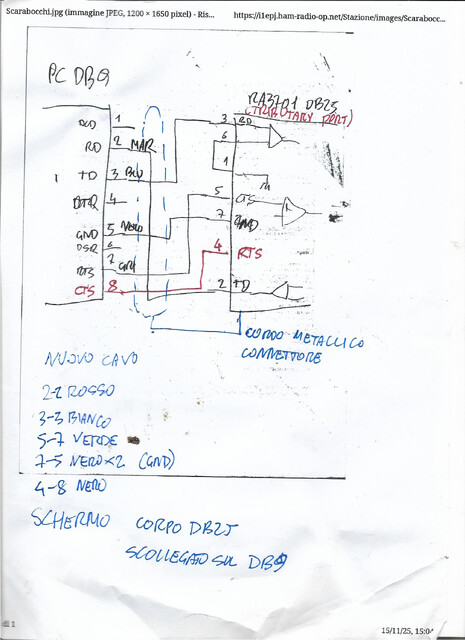 Scarabocchi.jpg (immagine JPEG, 1200 × 1650 pixel) - Ris...
https://i1epj.ham-radio-op.net/Stazione/images/Scarabocc...
PC DB9
RA3701 DB25
(TRIBUTARY PORT)
DCD 1
RD 2 MAR
TD 3 BLU
DTR 4
GND 5 NERO
DSR 6
RTS 7 GRI
CTS 8
3 RD
6
1
5 CTS
7 GND
4 RTS
2 TD
1
CORPO METALLICO
CONNETTORE
NUOVO CAVO
2-2 ROSSO
3-3 BIANCO
5-7 VERDE
7-5 NERO×2 (GND)
4-8 NERO
SCHERMO CORPO DB25
SCOLLEGATO SUL DB9
15/11/25, 15:04